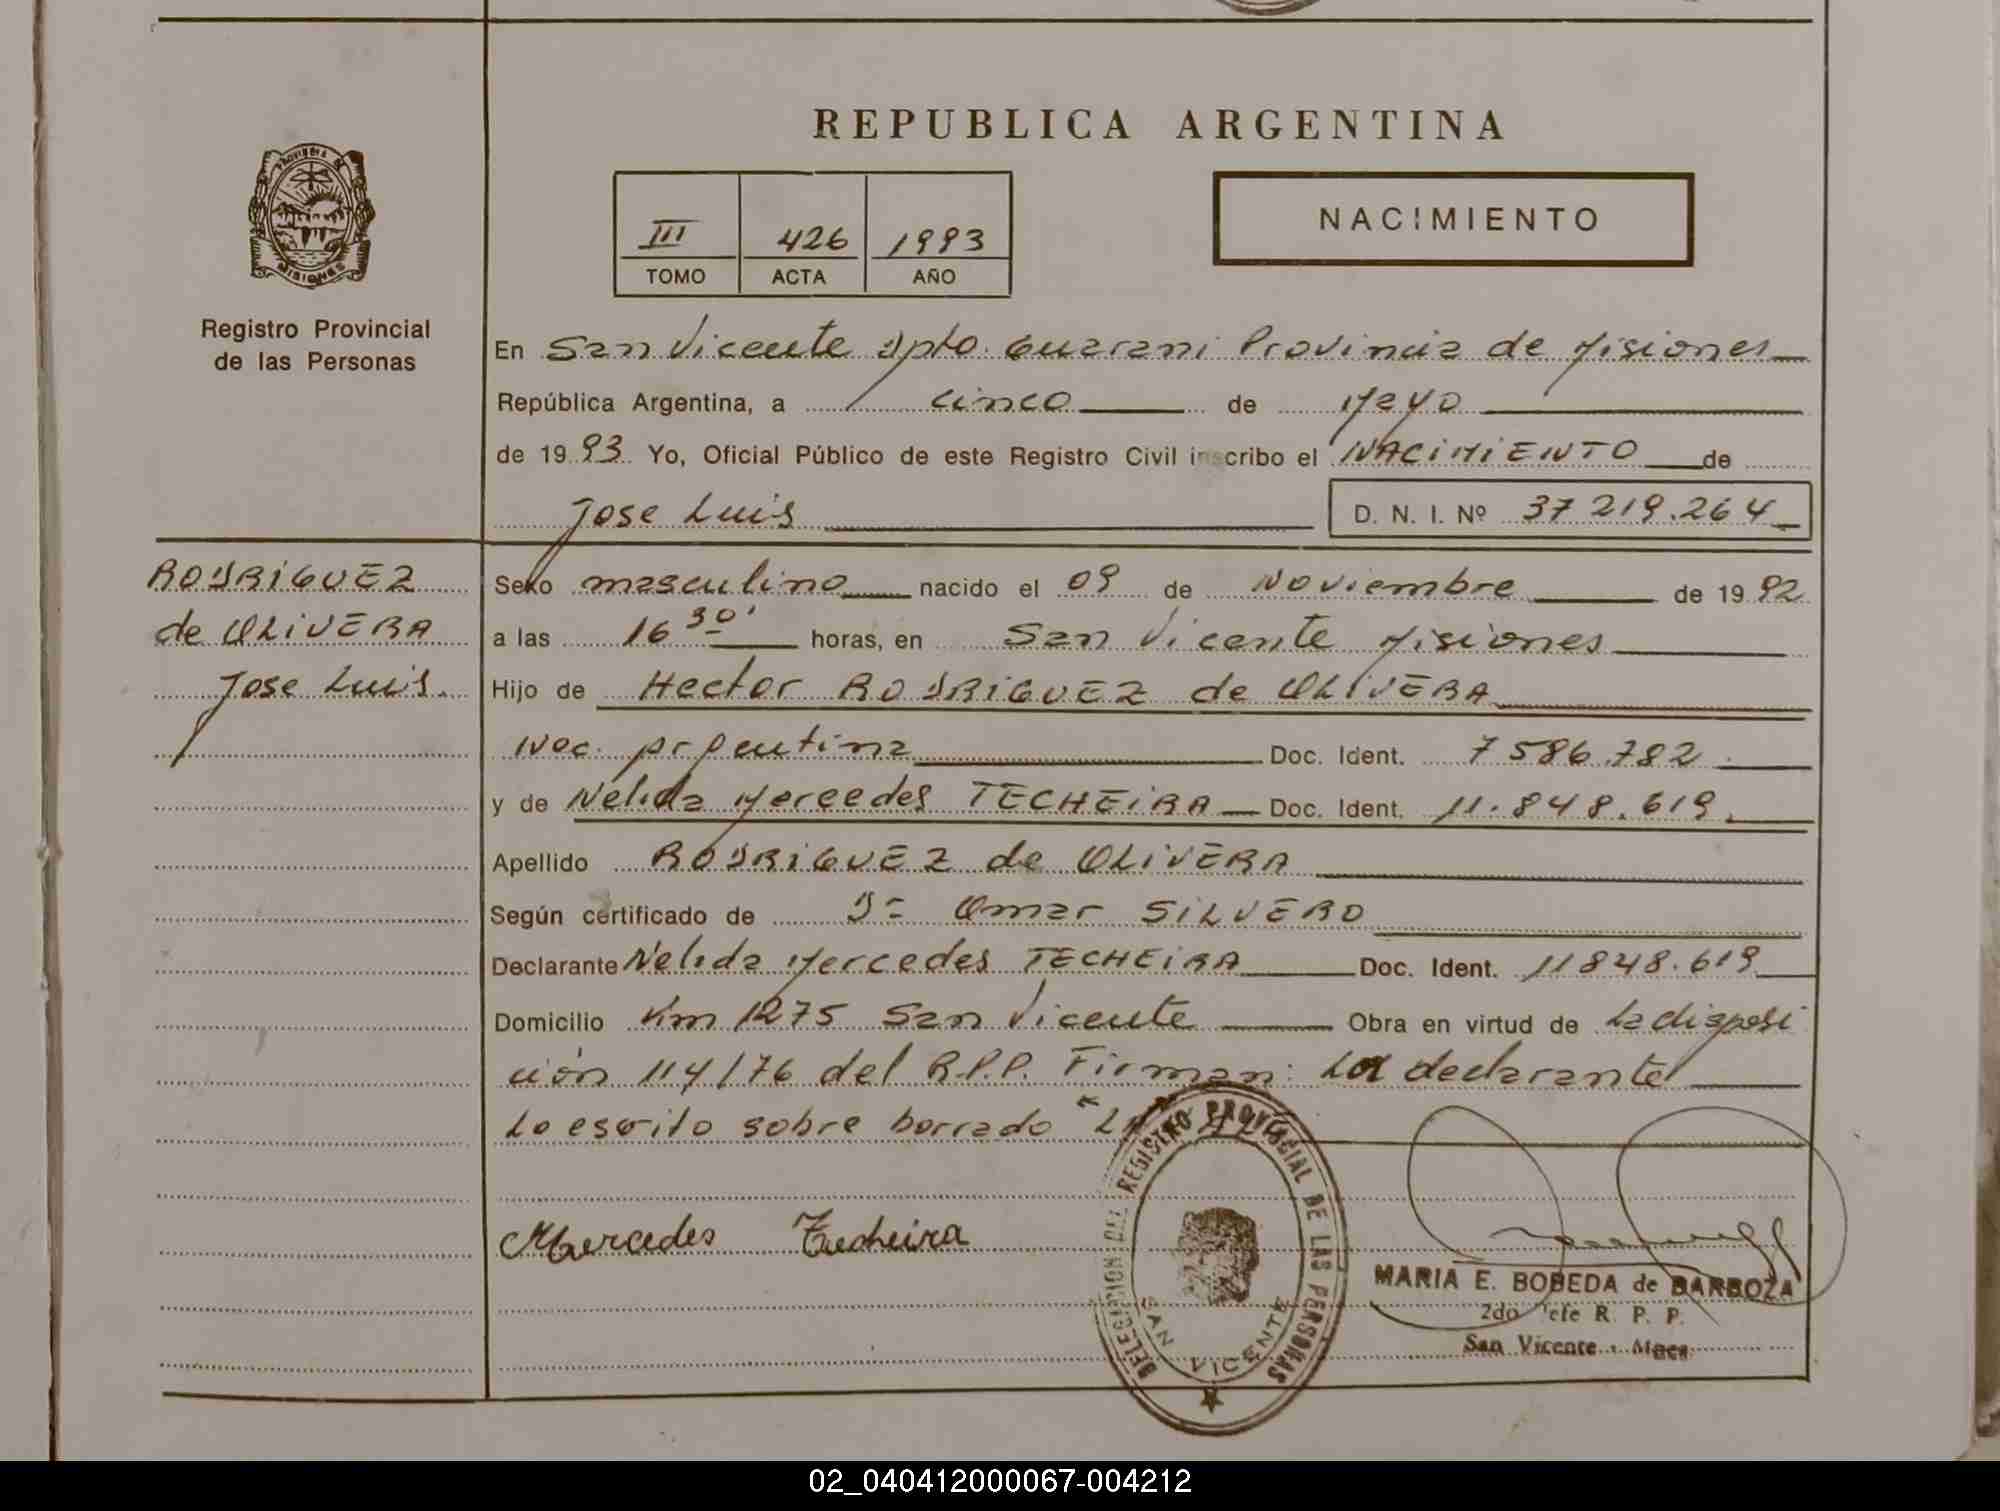 REPUBLICA ARGENTINA
PROVINCIA DE
MISIONES
Registro Provincial
de las Personas
III 426 1993
TOMO ACTA AÑO
NACIMIENTO
En San Vicente Dpto. Guarani Provincia de Misiones
República Argentina, a cinco de Mayo
de 1993 Yo, Oficial Público de este Registro Civil inscribo el NACIMIENTO de
Jose Luis D. N. I. Nº 37 219.264
RODRIGUEZ
de OLIVERA
Jose Luis.
Sexo masculino nacido el 09 de Noviembre de 1992
a las 16 30' horas, en San Vicente Misiones
Hijo de Hector RODRIGUEZ de OLIVERA
Nac. Argentina Doc. Ident. 7 586.782
y de Nelida Mercedes TECHEiRA Doc. Ident. 11.848.619.
Apellido RODRIGUEZ de OLIVERA
Según certificado de Dr Omar SILVERO
Declarante Nelida Mercedes TECHEiRA Doc. Ident. 11848.619
Domicilio Km 1275 San Vicente Obra en virtud de la disposi
ción 114/76 del R.P.P. Firman: La declarante
Lo escrito sobre borrado "La"
Mercedes Techeira
DELEGACION DEL REGISTRO PROVINCIAL DE LAS PERSONAS
SAN VICENTE
MARIA E. BOBEDA de BARBOZA
2do Jefe R. P. P.
San Vicente - Mnes
02_040412000067-004212